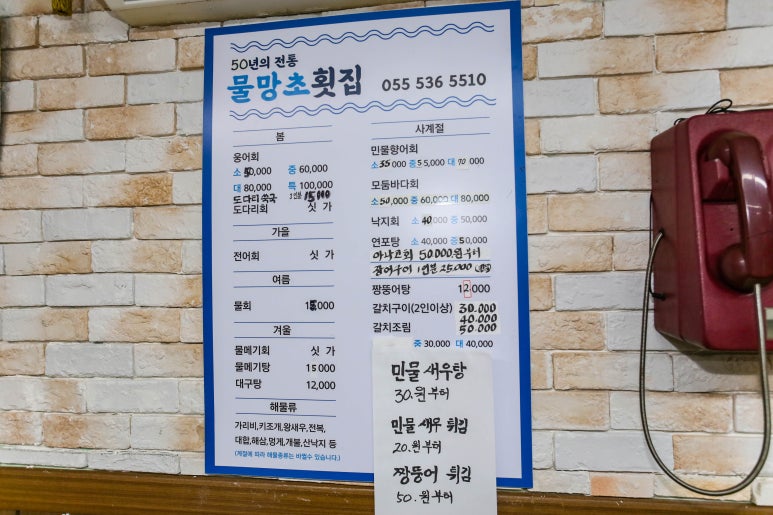 50년의 전통
물망초횟집 055 536 5510
봄
웅어회
소 50,000 중 60,000
대 80,000 특 100,000
도다리 쑥국 1인분 15,000
도다리회 싯 가
가을
전어회 싯 가
여름
물회 15,000
겨울
물메기회 싯 가
물메기탕 15000
대구탕 12,000
해물류
가리비,키조개,왕새우,전복,
대합,해삼,멍게,개불,산낙지 등
(계절에 따라 해물종류는 바뀔수 있습니다.)
사계절
민물향어회
소 35,000 중 55,000 대 70 000
모둠바다회
소 50,000 중 60,000 대 80,000
낙지회 소 40,000 중 50,000
연포탕 소 40,000 중 50,000
아나고회 50,000.원부터
장어구이 1인분 25,000
짱뚱어탕 12,000
갈치구이(2인이상) 30.000
40.000
갈치조림 50.000
중 30,000 대 40,000
민물 새우탕
30.원부터
민물 새우 튀김
20.원부터
짱뚱어 튀김
50.원부터